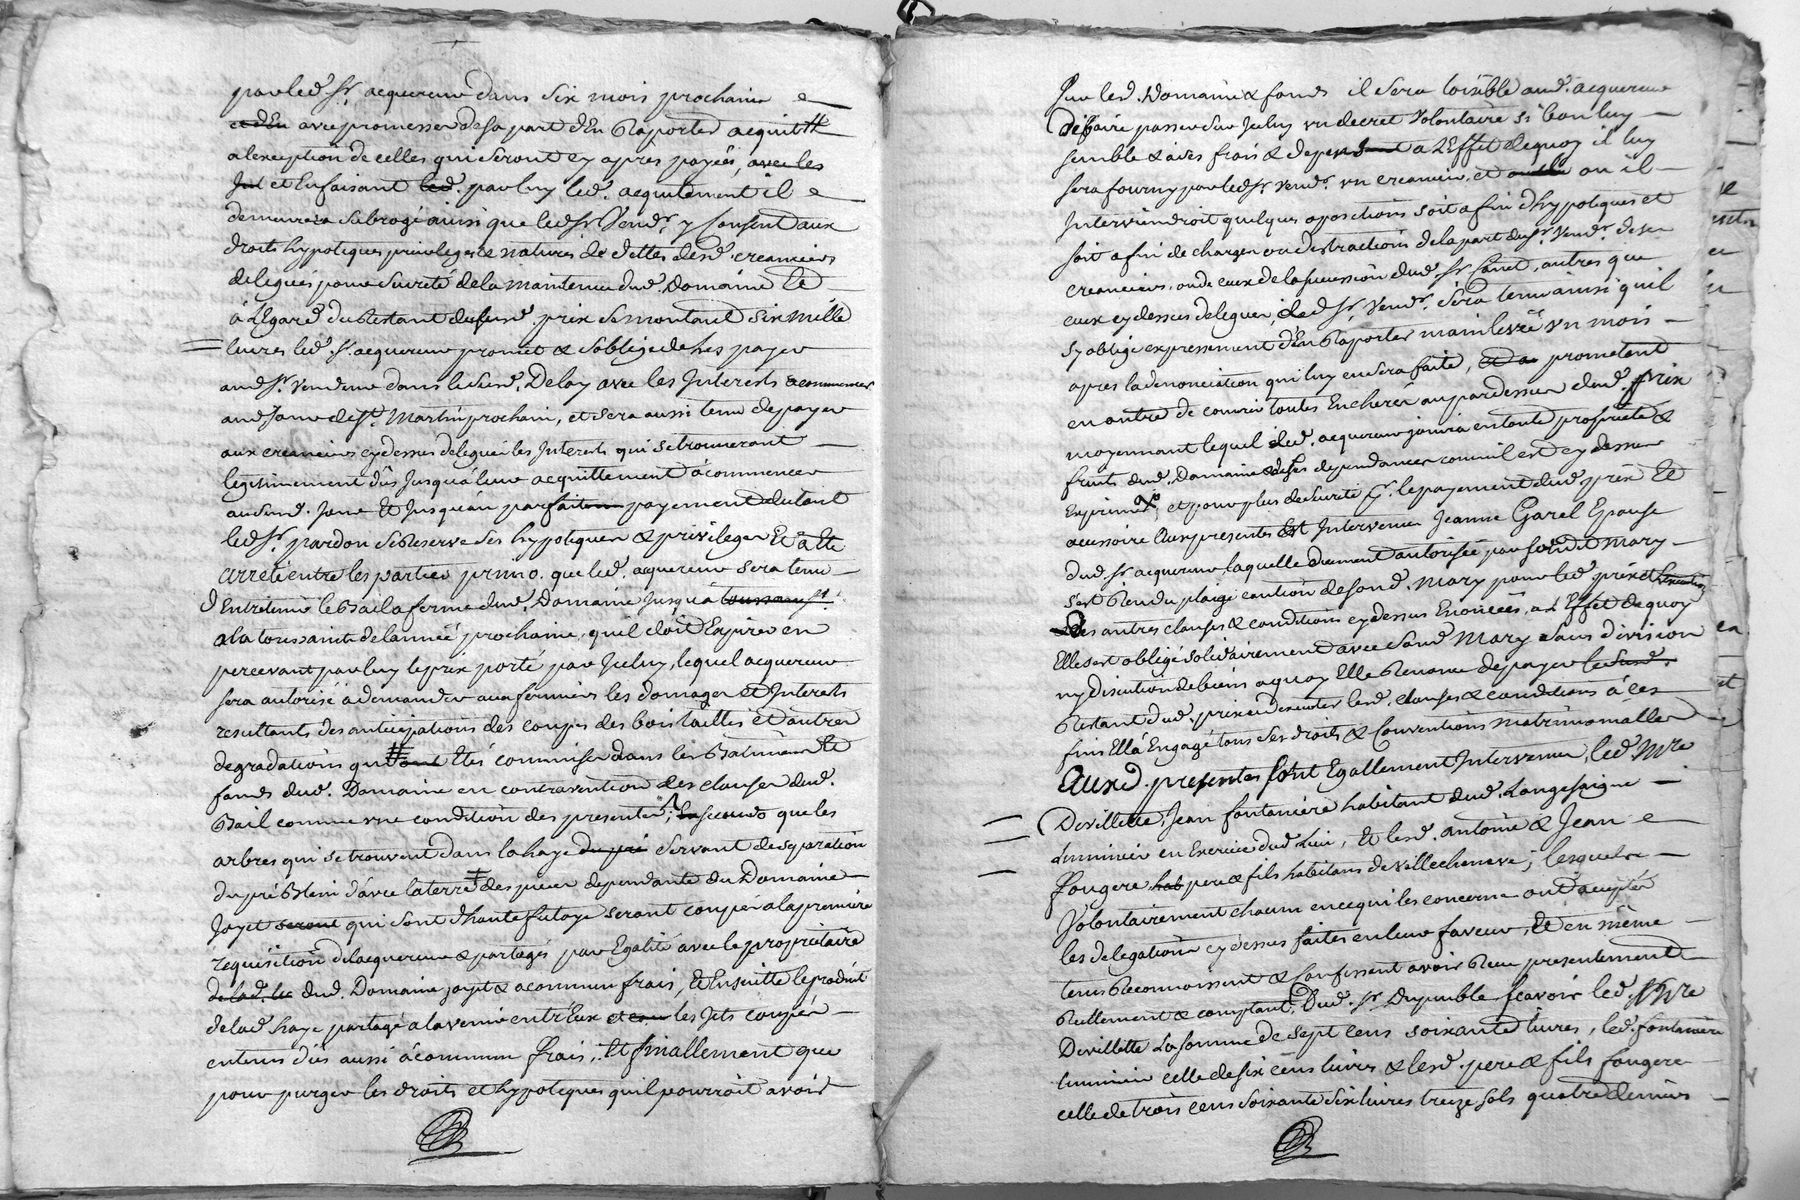 par led. Sr. acquereur dans six mois prochains
avec promesse de sa part d'En Raporter acquit #
a lexception de celles qui seront cy apres payées, avec les
et En faisant led. par luy led. acquitement il
demeurera subrogé ainsi que led. Sr. Vendr. y Consent aux
droits hypoteques privileges & natures de dettes desd. creanciers
delegués pour sureté de la maintenue dud. Domaine Et
à L'Egard du Restant dususd. prix se montant Six Mille
livres led. Sr. acquereur promet & s'oblige de les payer
aud. Sr. Vendeur dans le susd. Delay avec les Interests a commencer
aud. Jour de St. Martin prochain, et sera aussi tenu de payer
aux creanciers cy dessus delegués les Interests qui se trouveront
legitimement dûs Jusqu'à leur acquittement à commencer
au susd. Jour Et Jusqu'au parfait payement dutout
led. Sr. pardon se Reserve ses hypoteques & privileges Et a Eté
arreté entre les parties primo. que led. acquereur sera tenu
d'Entretenir le Bail a ferme dud. Domaine Jusqu'à
a la toussaints de lannée prochaine, quil doit Expirer en
percevant par luy le prix porté par Iceluy, lequel acquereur
sera autorisé a demander aux fermiers les domages et Interests
resultants des anticipations des coupes des bois taillis et autres
degradations qui # Etés commises dans les Batimens Et
fonds dud. Domaine en contravention des clauses dud.
Bail comme une condition des presentes, secundo que les
arbres qui se trouvent dans la haye servant de separation
du pré Blein d'avec la terre des dependante du Domaine
Joyet qui sont d'haute futaye seront coupés a la premiere
requisition de lacquereur & partagés par Egalité avec le proprietaire
dud. Domaine joyet & a commun frais, Et Ensuitte le produit
de lad. haye partagé a lavenir entr'Eux les Jets coupés
entenus dûs aussi à commun frais, Et finallement que
pour purger les droits et hypoteques quil pourroit avoir
Sur led. Domaine & fonds il sera loisible aud. acquereur
de faire passer sur Iceluy un decret Volontaire si bon luy
semble & a ses frais & depens a L'Effet dequoy il luy
sera fourny par led. Sr. Vendr. un creancier, et ou il
Interviendroit quelques opositions soit afin d'hypoteques et
soit afin de charges ou distractions de la part dud. Sr. Vendr. de ses
creanciers, ou de ceux de la succession dud. Sr. autres que
ceux cy dessus delegués, led. Sr. Vendr. sera tenu ainsi quil
sy oblige expressement d'En Raporter mainlevée un mois
apres la denonciation qui luy en sera faite, prometant
en outre de couvrir toutes Encheres au pardessus dud. prix
moyennant lequel led. acquereur jouira en toute proprieté &
fruits dud. Domaine & de ses dependances comme il est cy dessus
Exprimé, et pour plus de sureté pr. le payement dud. prix Et
accessoire Aux presentes Est Intervenue Jeanne Garel Epouse
dud. Sr. acquereur laquelle duement autorisée par sond. Mary
s'est Rendu plaige caution de sond. Mary pour led. prix et
Des autres clauses & conditions cy dessus Enoncées, a L'Effet dequoy
Elle s'est obligé solidairement avec sond. Mary sans division
ny discution de biens a quoy Elle Renonce de payer
Restant dud. prix & d'executer lesd. clauses & conditions à ces
fins Ell'a Engagé tous ses droits & Conventions matrimonialles
Auxd. presentes sont Egallement Intervenus, led. Mre
Devillette, Jean fontaniere habitant dud. Longessaigne
Luminier en Exercice dud. Lieu, Et lesd. antoine & Jean
Fougere pere & fils habitans de Villecheneve, lesquels
Volontairement chacun en ce qui les concerne ont accepté
les delegations cy dessus faites en leur faveur, Et en même
tems Reconnoissent & Confessent avoir Reçu presentement
Reellement & comptant, Dud. Sr. Dupuble scavoir led. Mre
Devillette La somme de sept cens soixante livres, led. fontaniere
luminier celle de six cens livres & lesd. pere & fils fougere
celle de trois cens soixante six livres treize sols quatre deniers